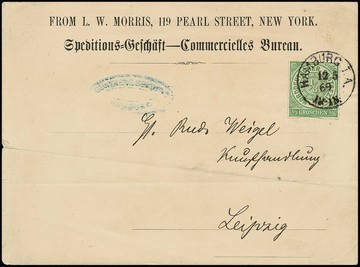 FROM L. W. MORRIS, 119 PEARL STREET, NEW YORK.
Speditions-Geschäft—Commercielles Bureau.
HAMBURG I.A.
12 5
69
GROSCHEN
Rud. Weigel
Kunsthandlung
Leipzig